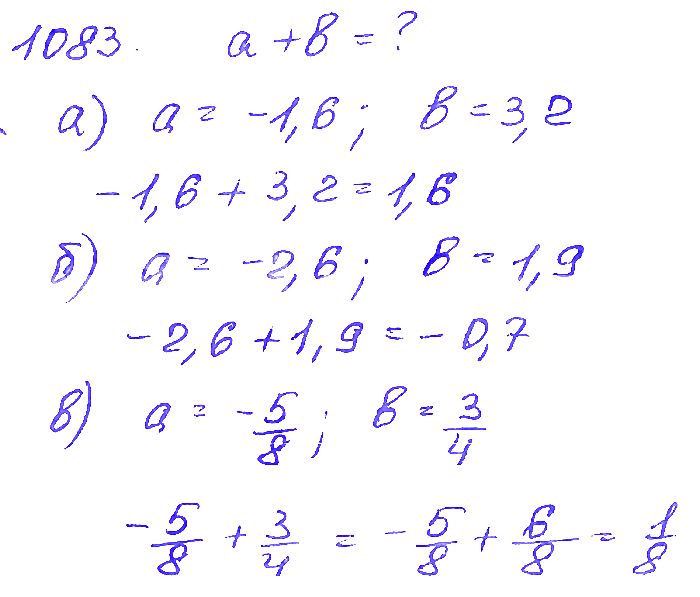 1083. a + b = ?
а) a = -1,6; b = 3,2
-1,6 + 3,2 = 1,6
б) a = -2,6; b = 1,9
-2,6 + 1,9 = -0,7
в) a = -5/8; b = 3/4
-5/8 + 3/4 = -5/8 + 6/8 = 1/8